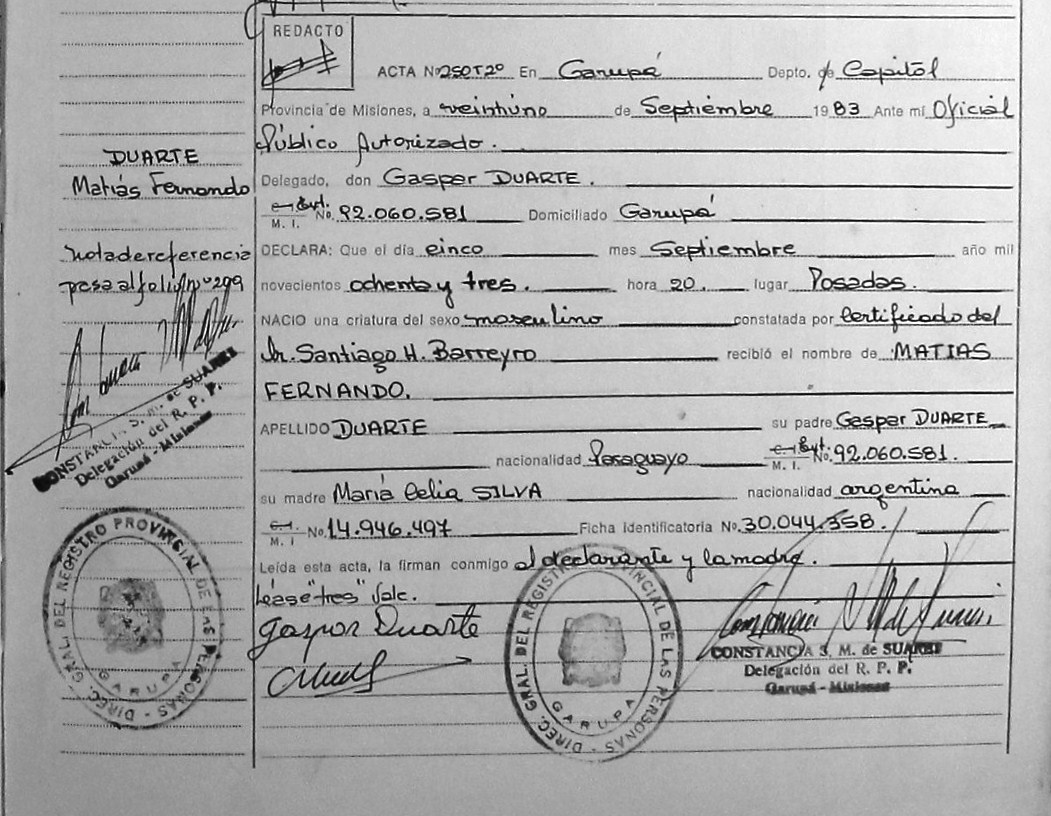 REDACTO
ACTA Nº 250 T 2º En Garupá Depto. de Capital
Provincia de Misiones, a veintiuno de Septiembre 1983 Ante mí Oficial
Público Autorizado.
Delegado, don Gaspar DUARTE.
M. I. No. 92.060.581 Domiciliado Garupá
DECLARA: Que el día cinco mes Septiembre año mil
novecientos ochenta y tres. hora 20. lugar Posadas.
NACIO una criatura del sexo masculino constatada por Certificado del
Dr. Santiago H. Barreyro recibió el nombre de MATIAS
FERNANDO.
APELLIDO DUARTE su padre Gaspar DUARTE
nacionalidad Paraguayo M. I. No. 92.060.581.
su madre María Celia SILVA nacionalidad argentina
M. I No. 14.946.497 Ficha identificatoria No. 30.044.358.
Leída esta acta, la firman conmigo el declarante y la madre.
Léase "tres" Vale.
Gaspar Duarte
CONSTANCIA S. M. de SUAREZ
Delegación del R. P. P.
Garupá - Misiones
DIREC. GRAL. DEL REGISTRO PROVINCIAL DE LAS PERSONAS - GARUPA
DUARTE
Matiás Fernando
Nota de referencia
pasa al folio nº 299
CONSTANCIA S. M. de SUAREZ
Delegación del R. P. P.
Garupá - Misiones
DIREC. GRAL. DEL REGISTRO PROVINCIAL DE LAS PERSONAS - GARUPA